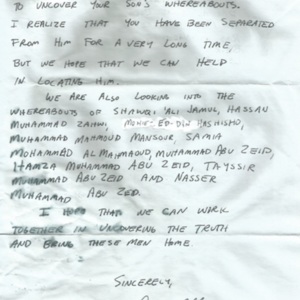 TO UNCOVER YOUR SON'S WHEREABOUTS.
I REALIZE THAT YOU HAVE BEEN SEPARATED
FROM HIM FOR A VERY LONG TIME,
BUT WE HOPE THAT WE CAN HELP
IN LOCATING HIM.
WE ARE ALSO LOOKING INTO THE
WHEREABOUTS OF SHAWQI, ALI JAMUL, HASSAN
MUHAMMAD ZAHWI, HASHISHO,
MUHAMMAD MAHMOUD MANSOUR SAMIA
MOHAMMAD AL MAHMAOUD, MUTHAMMAD ABU ZEID,
HAMZA MUHAMMAD ABU ZEID, TAYSSIR
MUHAMMAD ABU ZEID AND NASSER
MUHAMMAD ABU ZED.
I HOPE THAT WE CAN WORK
TOGETHER IN UNCOVERING THE TRUTH
AND BRING THESE MEN HOME.
SINCERELY,